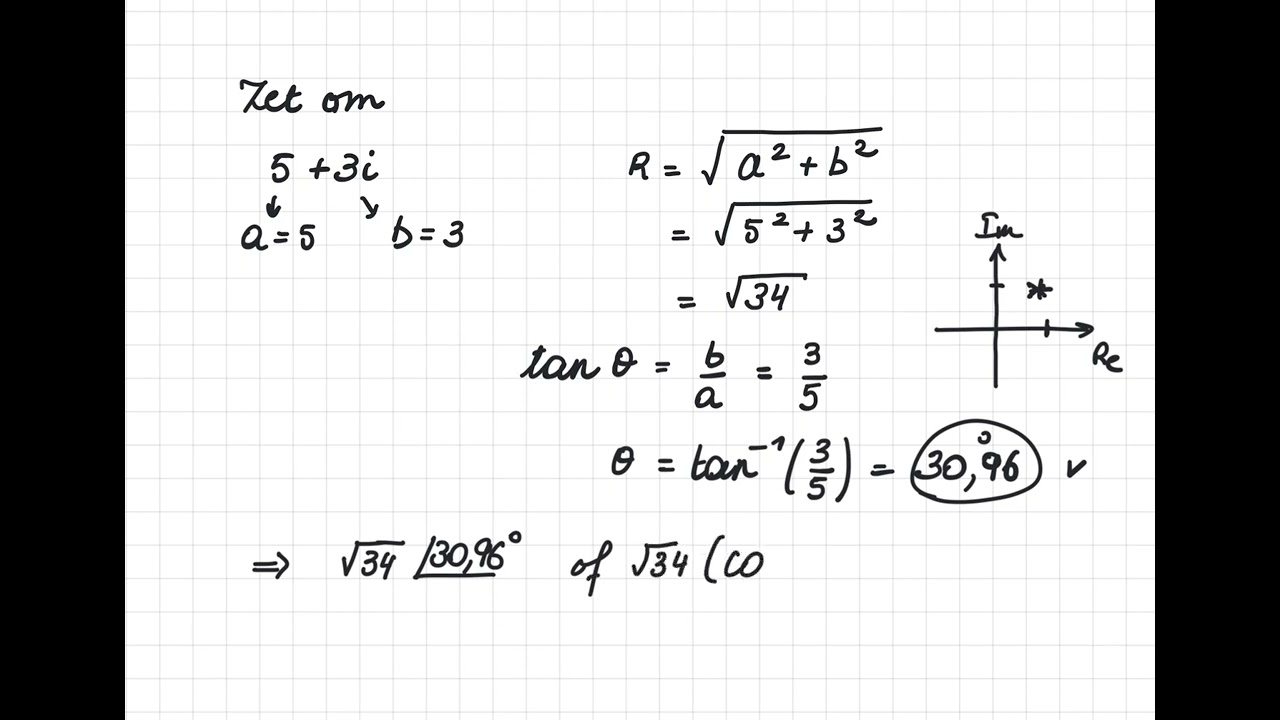 Zet om
5 + 3i
a = 5 b = 3
R = √(a² + b²)
= √(5² + 3²)
= √34
Im
Re
tan θ = b/a = 3/5
θ = tan⁻¹(3/5) = 30,96° ✓
⇒ √34 ∠30,96° of √34 (co